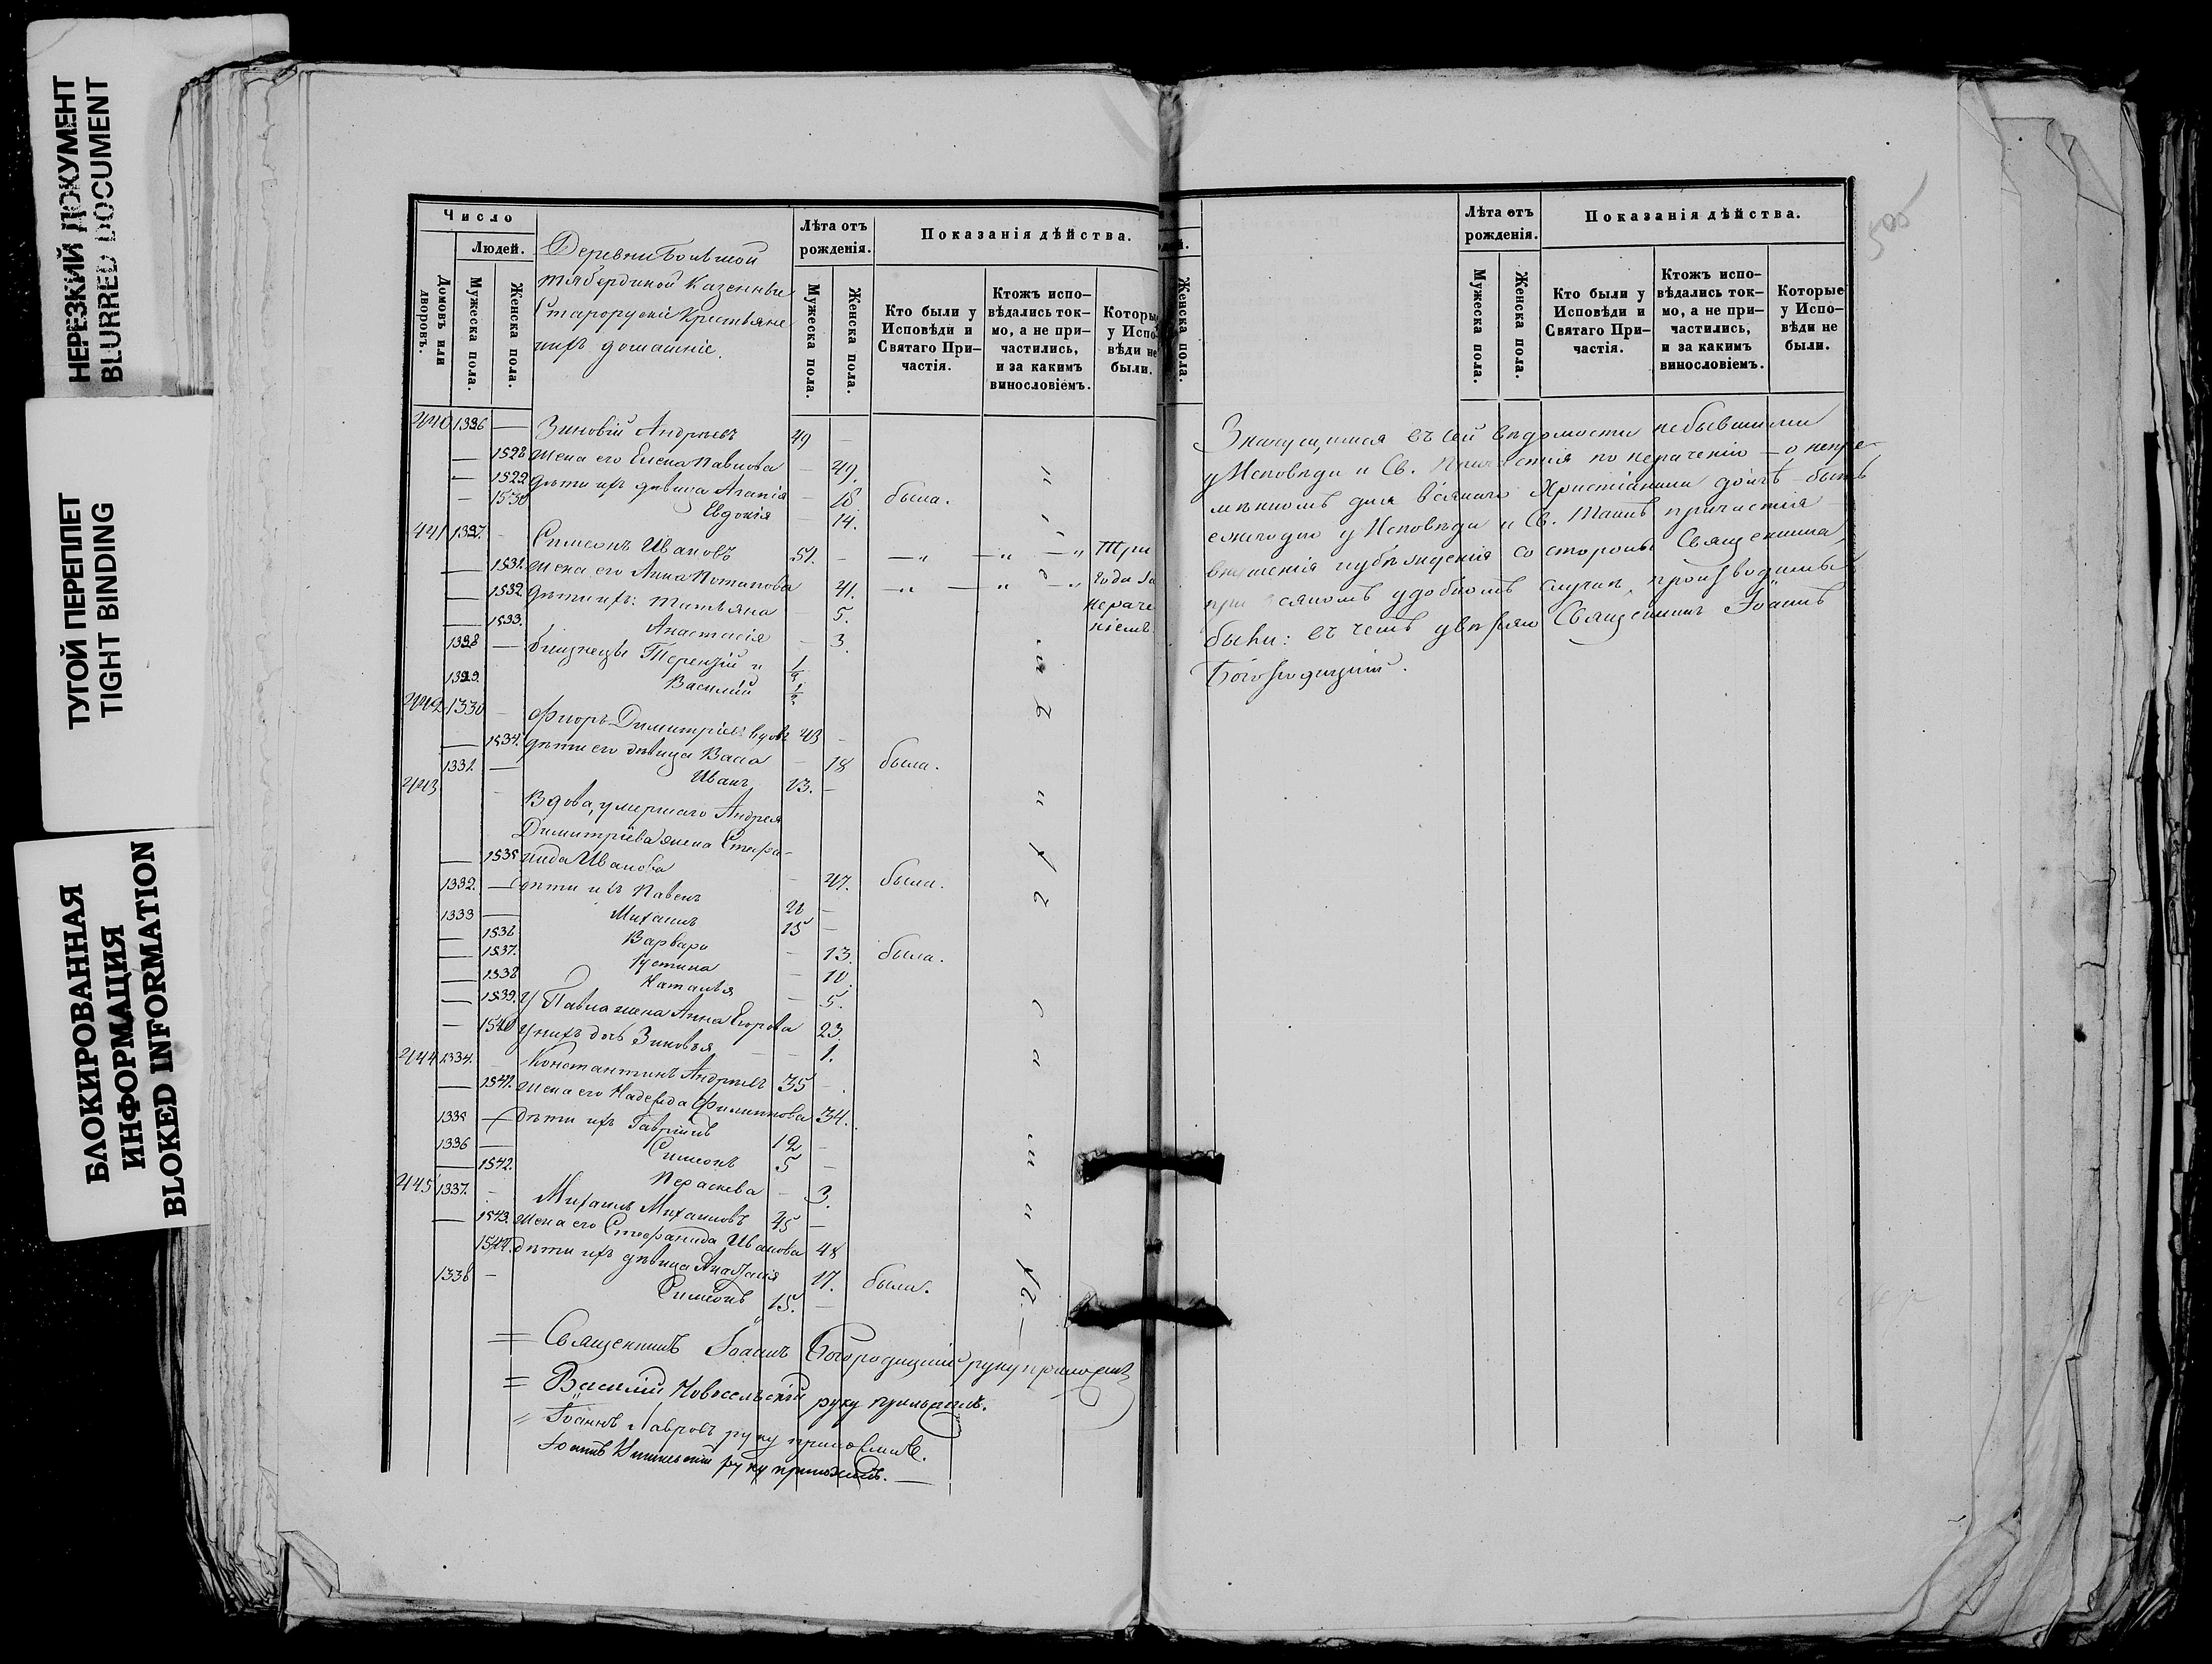 НЕРЕЗКИЙ ДОКУМЕНТ
BLURRED DOCUMENT
ТУГОЙ ПЕРЕПЛЕТ
TIGHT BINDING
БЛОКИРОВАННАЯ
ИНФОРМАЦИЯ
BLOKED INFORMATION
Число
Людей.
Домовъ или дворовъ.
Мужеска пола.
Женска пола.
Деревни Большой
Тябердиной Казенные
Старорускіе Крестьяне
ихъ домашніе.
Лѣта отъ рожденія.
Мужеска пола.
Женска пола.
Показанія дѣйства.
Кто были у Исповѣди и Святаго Причастія.
Ктожъ исповѣдались токмо, а не причастились, и за какимъ винословіемъ.
Которые у Исповѣди не были.
440 1326 — Зиновій Андреевъ 49 —
— 1528 жена его Елена Павлова — 49.
— 1529 дѣти ихъ дѣвица Агапія — 18 была.
— 1530 Евдокія 14.
441 1327. — Симеонъ Ивановъ 51. — Три
— 1531. жена его Анна Потапова 41. года за
— 1532 дѣти ихъ: Татьяна 5. нераче
— 1533. Анастасія — 3. ніемъ.
1328 — близнецы Терентій и 1/2
1329. Василій 1/2
442 1330 — Флоръ Димитріевъ вдовъ 43 —
— 1534. дѣти его дѣвица Васса — 18 была.
1331. — Иванъ 13. —
443 — Вдова, умершаго Андрея
Димитріева жена Стефа-
— 1535 нида Иванова — 47. была.
1332. — дѣти ихъ Павелъ 21 —
1333 — Михаилъ 15 —
— 1536 Варвара — 13. была.
— 1537. Устина — 10.
— 1538 Наталья — 5.
— 1539. У Павла жена Анна Егорова 23.
— 1540 у нихъ дочь Зиновья — — 1.
444 1334. — Константинъ Андреевъ 35 —
— 1541. жена его Надежда Филиппова 34.
1335 — дѣти ихъ Гавріилъ 12 —
1336 — Симеонъ 5 —
— 1542. Параскева — 3.
445 1337. — Михаилъ Михаиловъ 45 —
— 1543. жена его Стефанида Иванова 48
1544. дѣти ихъ дѣвица Анастасія 17. была.
1338 — Симеонъ 15. —
= Священникъ Іоаннъ Богородицкій руку приложилъ
= Василій Новосельскій руку приложилъ.
= Іоаннъ Лавровъ руку приложилъ.
Іоаннъ руку приложилъ. —
Женска пола.
Лѣта отъ рожденія.
Мужеска пола.
Женска пола.
Показанія дѣйства.
Кто были у Исповѣди и Святаго Причастія.
Ктожъ исповѣдались токмо, а не причастились, и за какимъ винословіемъ.
Которые у Исповѣди не были.
Значущимся въ сей вѣдомости небывшими
у Исповѣди и Св. Причастія по нераченію — о непре-
мѣнномъ для всякаго Христіанина долгѣ — быть
ежегодно у Исповѣди и Св. Таинъ причастія —
внушенія и убѣжденія со стороны Священника,
при всякомъ удобномъ случаѣ, производимы
были: въ чемъ увѣряю Священникъ Іоаннъ
Богородицкій.
505